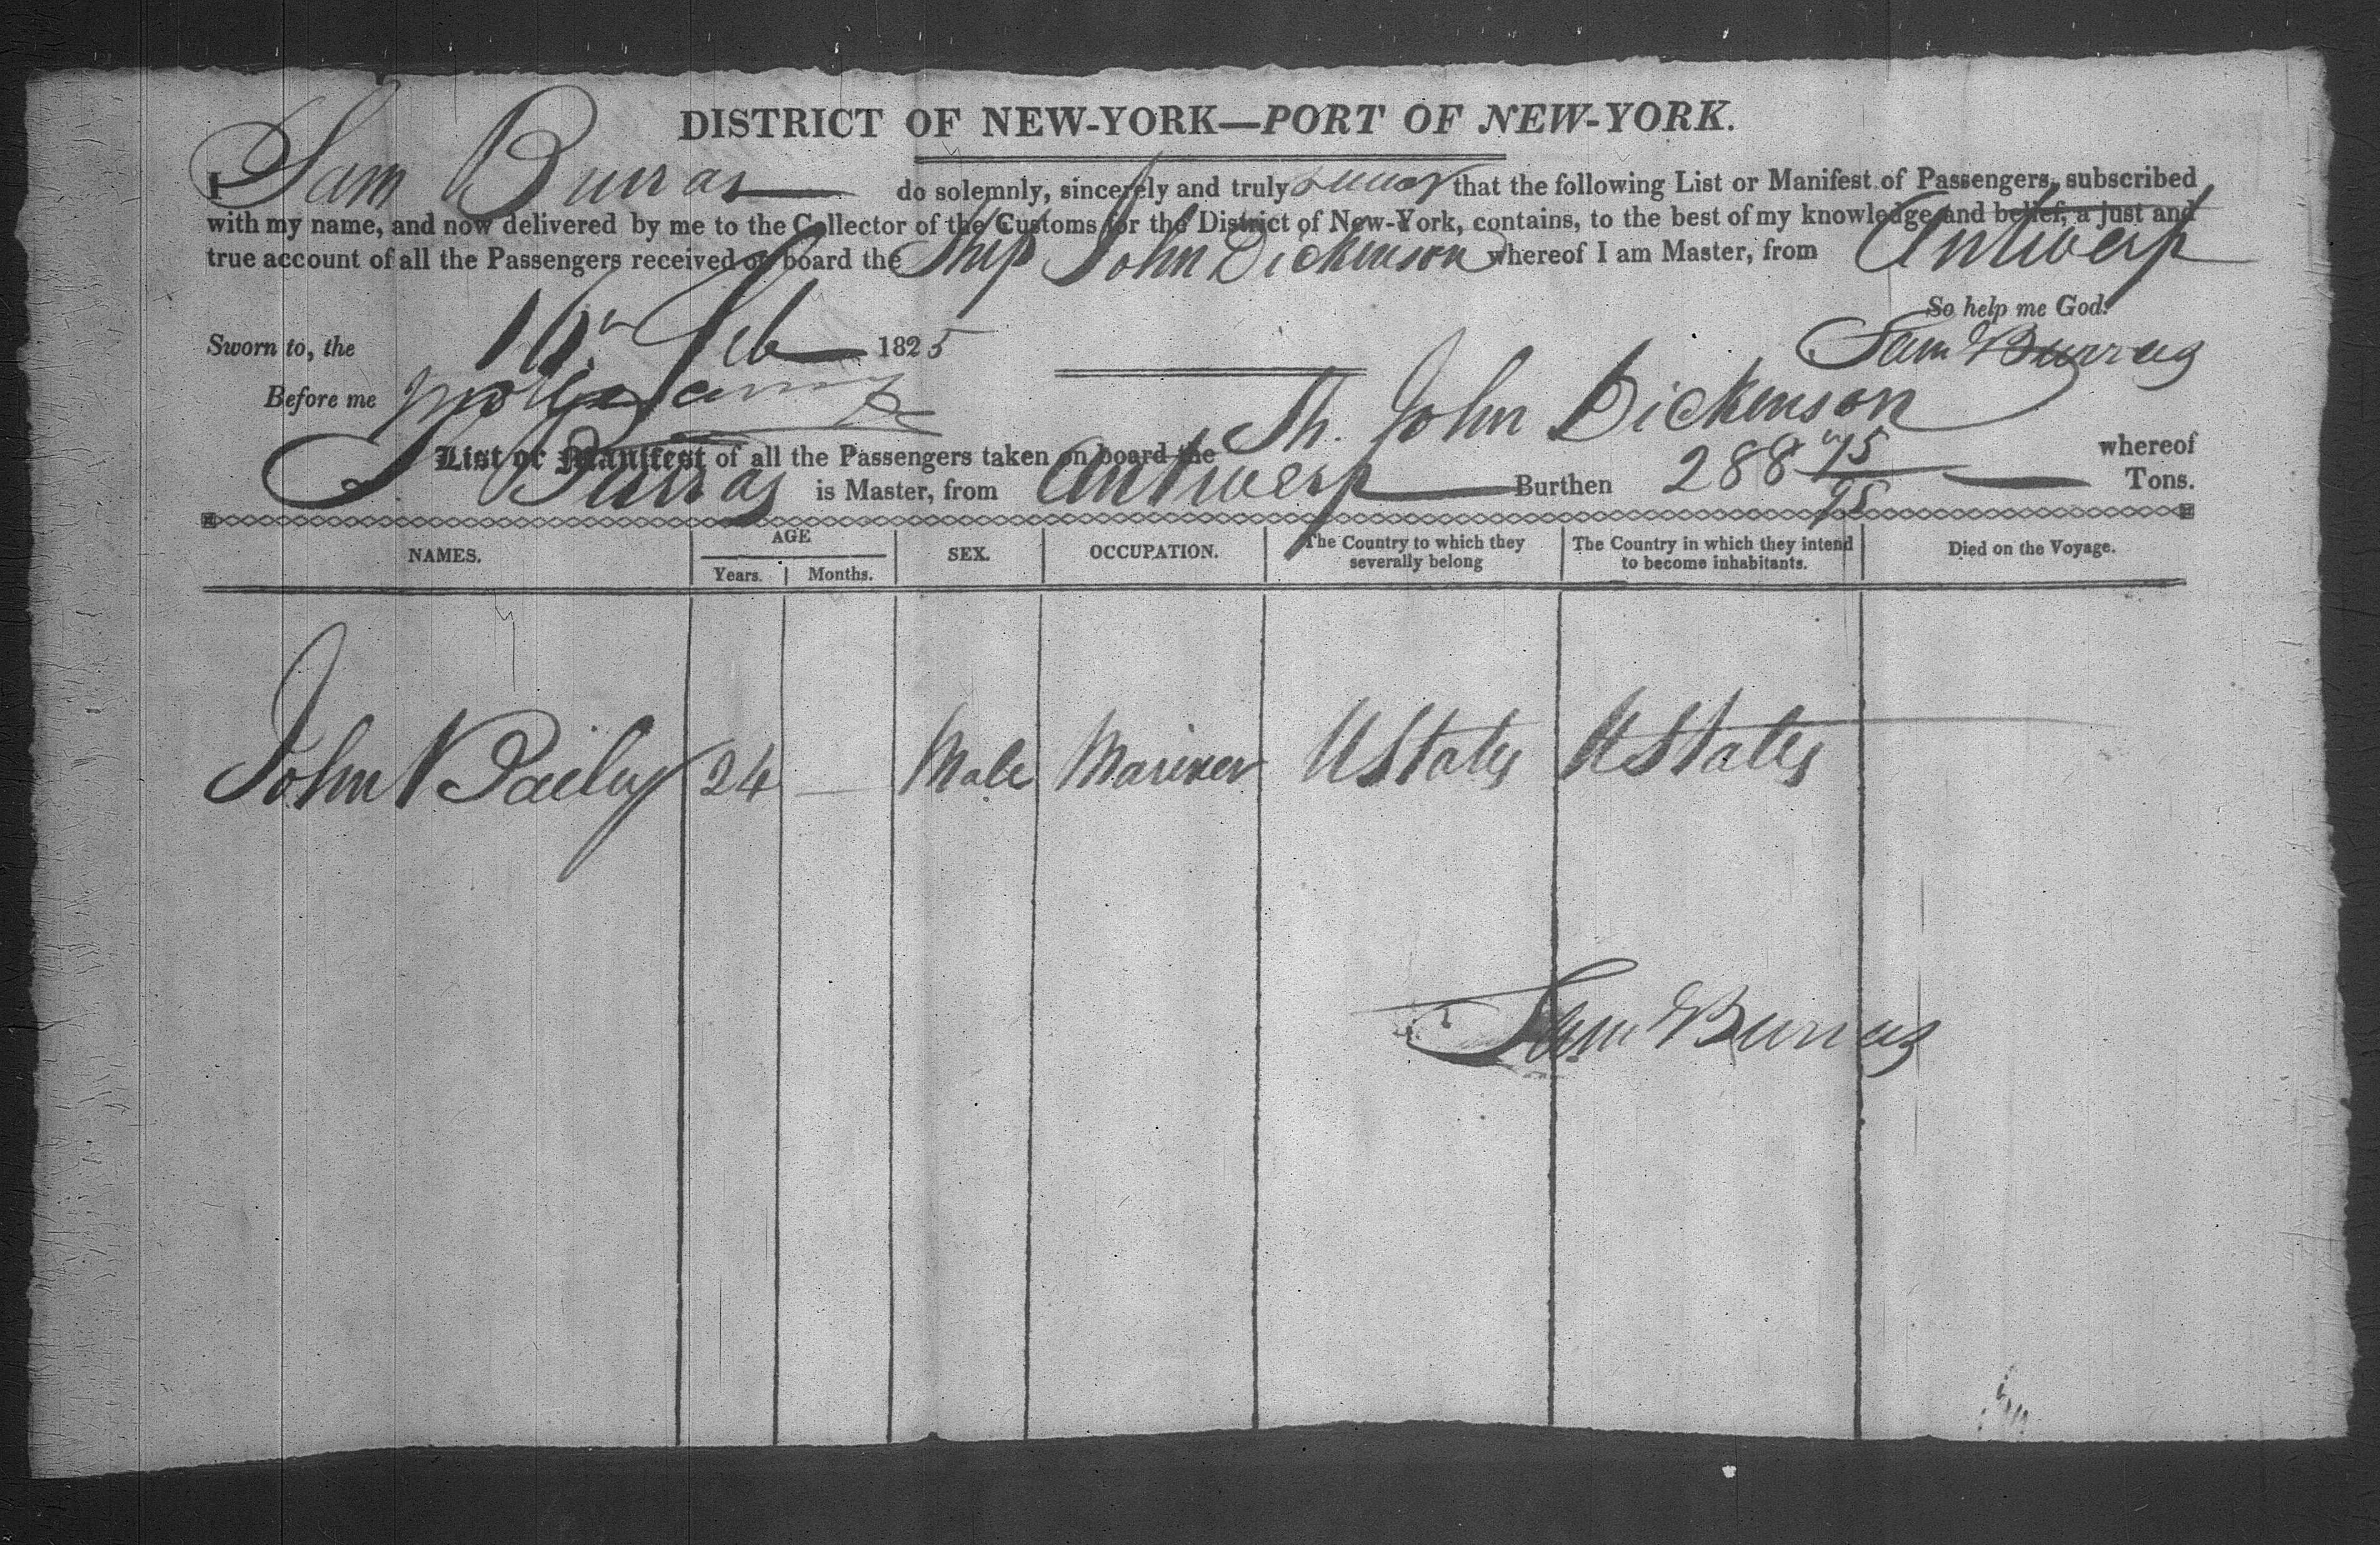 DISTRICT OF NEW-YORK—PORT OF NEW-YORK.
I Sam Burras do solemnly, sincerely and truly swear that the following List or Manifest of Passengers, subscribed
with my name, and now delivered by me to the Collector of the Customs for the District of New-York, contains, to the best of my knowledge and belief, a just and
true account of all the Passengers received on board the Ship John Dickenson whereof I am Master, from Antwerp
So help me God.
Sworn to, the Feb 1825 Sam Burras
Before me
List or Manifest of all the Passengers taken on board the Sh. John Dickenson whereof
S Burras is Master, from Antwerp Burthen 288 75/95 Tons.
NAMES. AGE Years. Months. SEX. OCCUPATION. The Country to which they severally belong The Country in which they intend to become inhabitants. Died on the Voyage.
John 24 — Male Mariner UStates UStates
Sam Burras